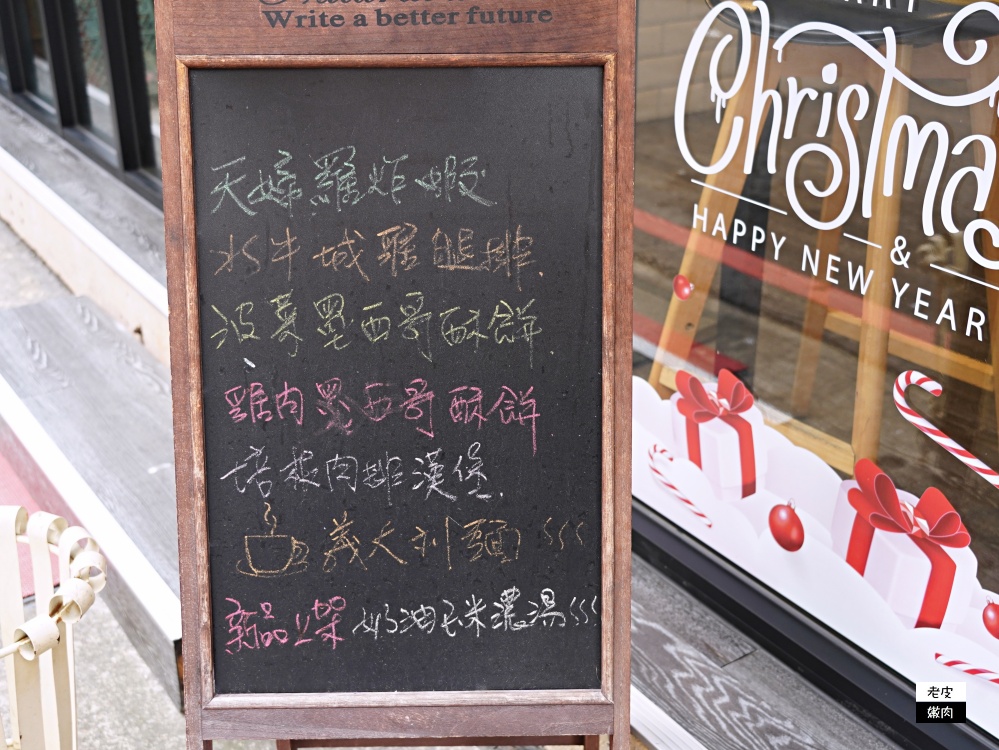 Write a better future
天婦羅炸蝦
水牛城雞腿排.
波菜墨西哥酥餅.
雞肉墨西哥酥餅
培根肉排漢堡.
義大利麵
新品上架 奶油玉米濃湯
Christmas
HAPPY NEW YEAR
&
老皮
嫩肉